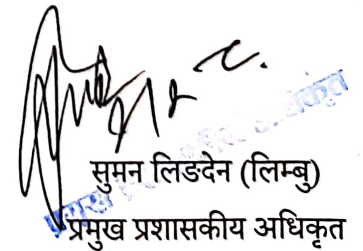 सुमन लिङदेन (लिम्बु)
प्रमुख प्रशासकीय अधिकृत